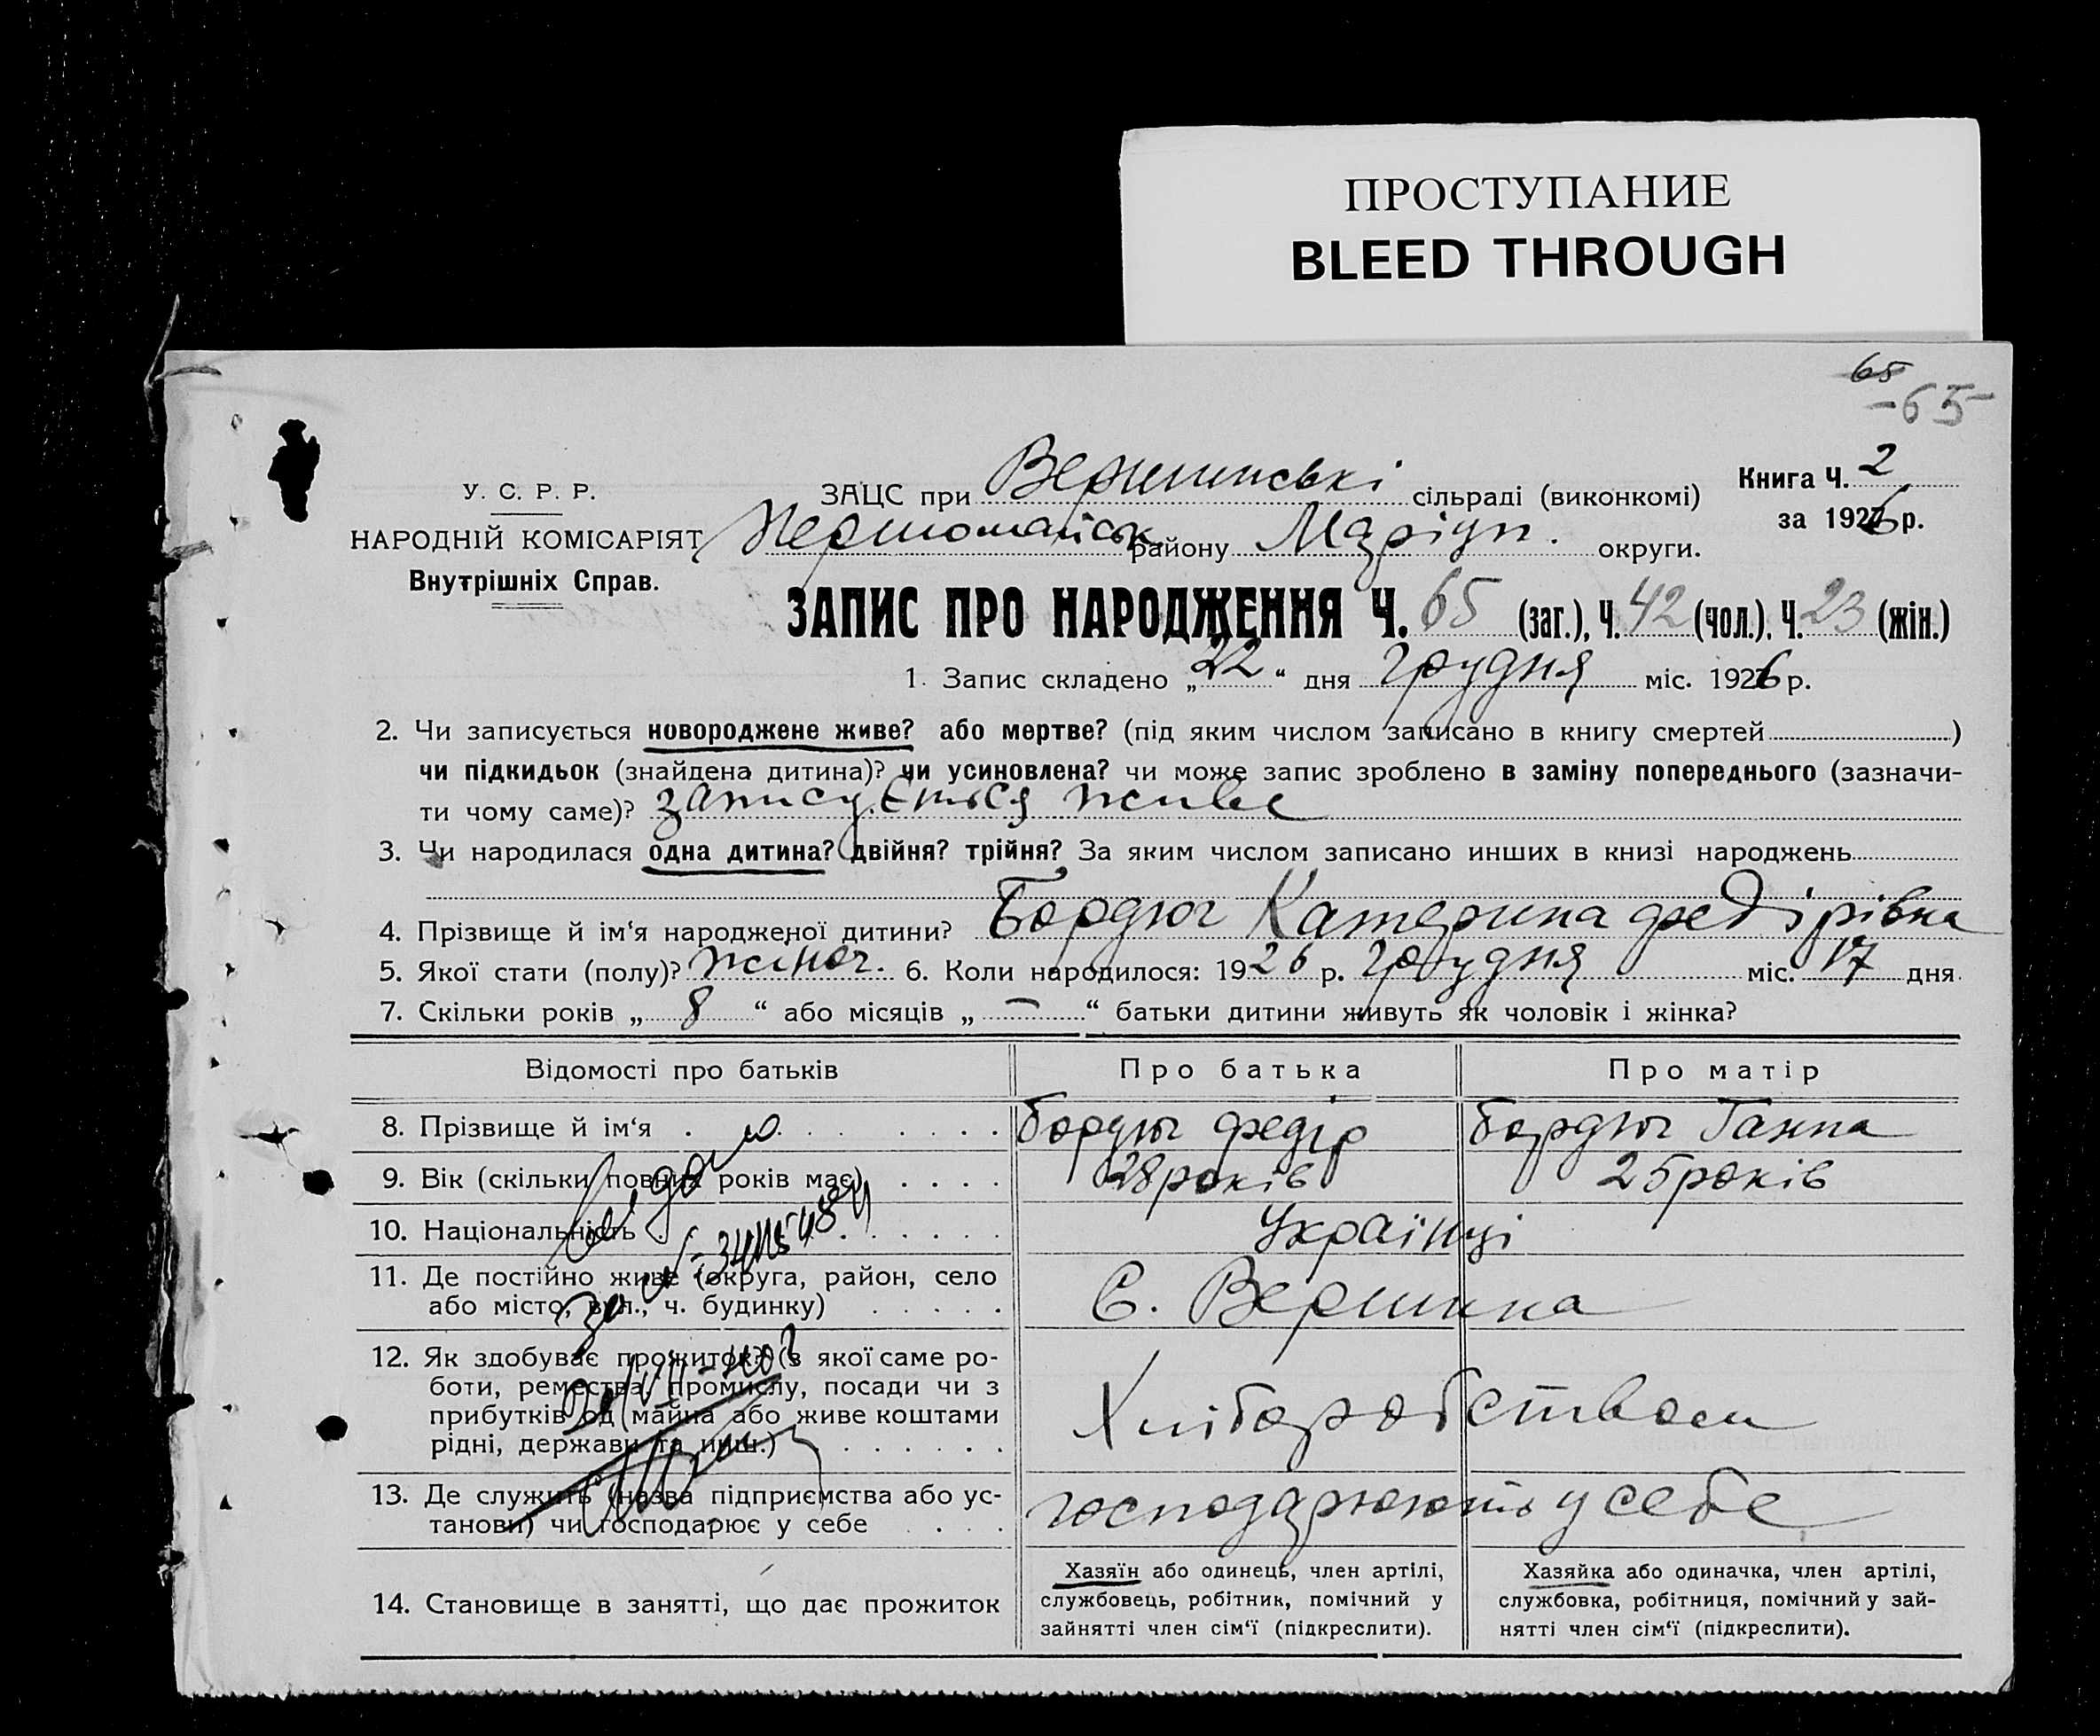 ПРОСТУПАНИЕ
BLEED THROUGH
65
-65-
У. С. Р. Р.
НАРОДНІЙ КОМІСАРІЯТ
Внутрішніх Справ.
ЗАЦС при Вершинські сільраді (виконкомі)
Першомайськ району Маріуп. округи.
Книга Ч. 2
за 1926 р.
ЗАПИС ПРО НАРОДЖЕННЯ Ч. 65 (заг.), Ч. 42 (чол.). Ч. 23 (жін.)
1. Запис складено „22“ дня грудня міс. 1926 р.
2. Чи записується новороджене живе? або мертве? (під яким числом записано в книгу смертей)
чи підкидьок (знайдена дитина)? чи усиновлена? чи може запис зроблено в заміну попереднього (зазначи-
ти чому саме)? записується живе
3. Чи народилася одна дитина? двійня? трійня? За яким числом записано инших в книзі народжень
4. Прізвище й ім‘я народженої дитини? Бордюг Катерина Федірівна
5. Якої стати (полу)? жіноч. 6. Коли народилося: 1926 р. грудня міс. 17 дня
7. Скільки років „ 8 “ або місяців „ — “ батьки дитини живуть як чоловік і жінка?
Відомості про батьків Про батька Про матір
8. Прізвище й ім‘я Бордюг Федір Бордюг Ганна
9. Вік (скільки повних років має) 28 років 25 років
10. Національність Українці
11. Де постійно живе (округа, район, село
або місто, вул., ч. будинку) С. Вершина
12. Як здобуває прожиток? (з якої саме ро-
боти, ремества, промислу, посади чи з
прибутків од майна або живе коштами
рідні, держави та инш.) Хліборобством
13. Де служить (назва підприємства або ус-
танови) чи господарює у себе господарюють у себе
14. Становище в занятті, що дає прожиток
Хазяїн або одинець, член артілі,
службовець, робітник, помічний у
зайнятті член сім‘ї (підкреслити).
Хазяйка або одиначка, член артілі,
службовка, робітниця, помічний у зай-
нятті член сім‘ї (підкреслити).